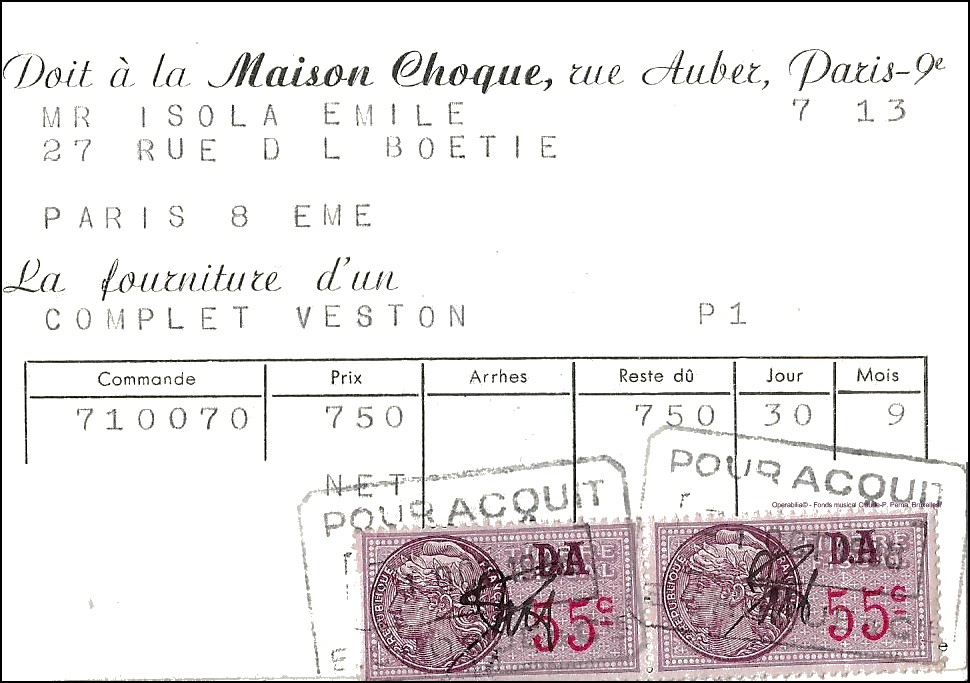 Doit à la Maison Choque, rue Auber, Paris-9e
MR ISOLA EMILE 7 13
27 RUE D L BOETIE
PARIS 8 EME
La fourniture d'un
COMPLET VESTON P1
Commande Prix Arrhes Reste dû Jour Mois
710070 750 750 30 9
NET
POUR ACQUIT
POUR ACQUIT
Operabilia© - Fonds musical Claude-P. Perna, Bruxelles
DA
55c
DA
55c